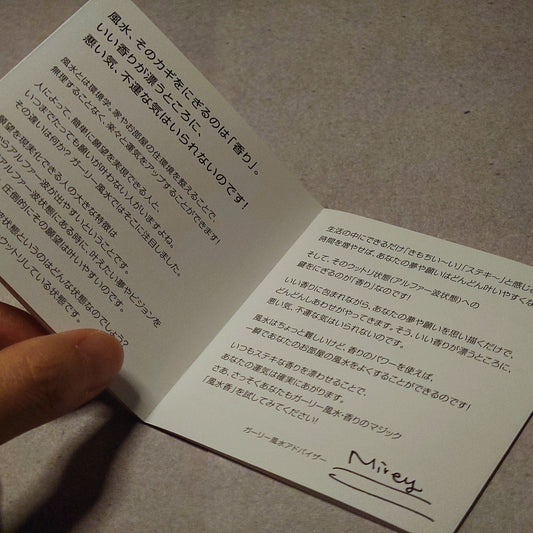 風水、そのカギをにぎるのは「香り」。
いい香りが漂うところに、
悪い気、不運な気はいられないのです!
風水とは環境学。家やお部屋の住環境を整えることで、
無理することなく、楽々と運気をアップすることができます!
人によって、簡単に願望を実現できる人と、
いつまでたっても願いが叶わない人がいますよね。
その違いは何か？ガーリー風水ではそこに注目しました。
願望を現実化できる人の大きな特徴は
アルファー波が出やすいということです。
アルファー波状態にある時に、叶えたい夢やビジョンを
圧倒的にその願望は叶いやすいのです。
波状態というのはどんな状態なのでしょう？
ウットリしている状態です。
生活の中にできるだけ「きもちいい〜」「ステキ〜」と感じ
時間を増やせば、あなたの夢や願いはどんどん叶いやすくな
そして、そのウットリ状態(アルファー波状態)への
鍵をにぎるのが「香り」なのです!
いい香りに包まれながら、あなたの夢や願いを思い描くだけで、
どんどんしあわせがやってきます。そう、いい香りが漂うところに、
悪い気、不運な気はいられないのです。
風水はちょっと難しいけど、香りのパワーを使えば、
一瞬であなたのお部屋の風水をよくすることができるのです!
いつもステキな香りを漂わせることで、
あなたの運気は確実にあがります。
さあ、さっそくあなたもガーリー風水・香りのマジック
「風水香」を試してみてください!
ガーリー風水アドバイザー
Mirey